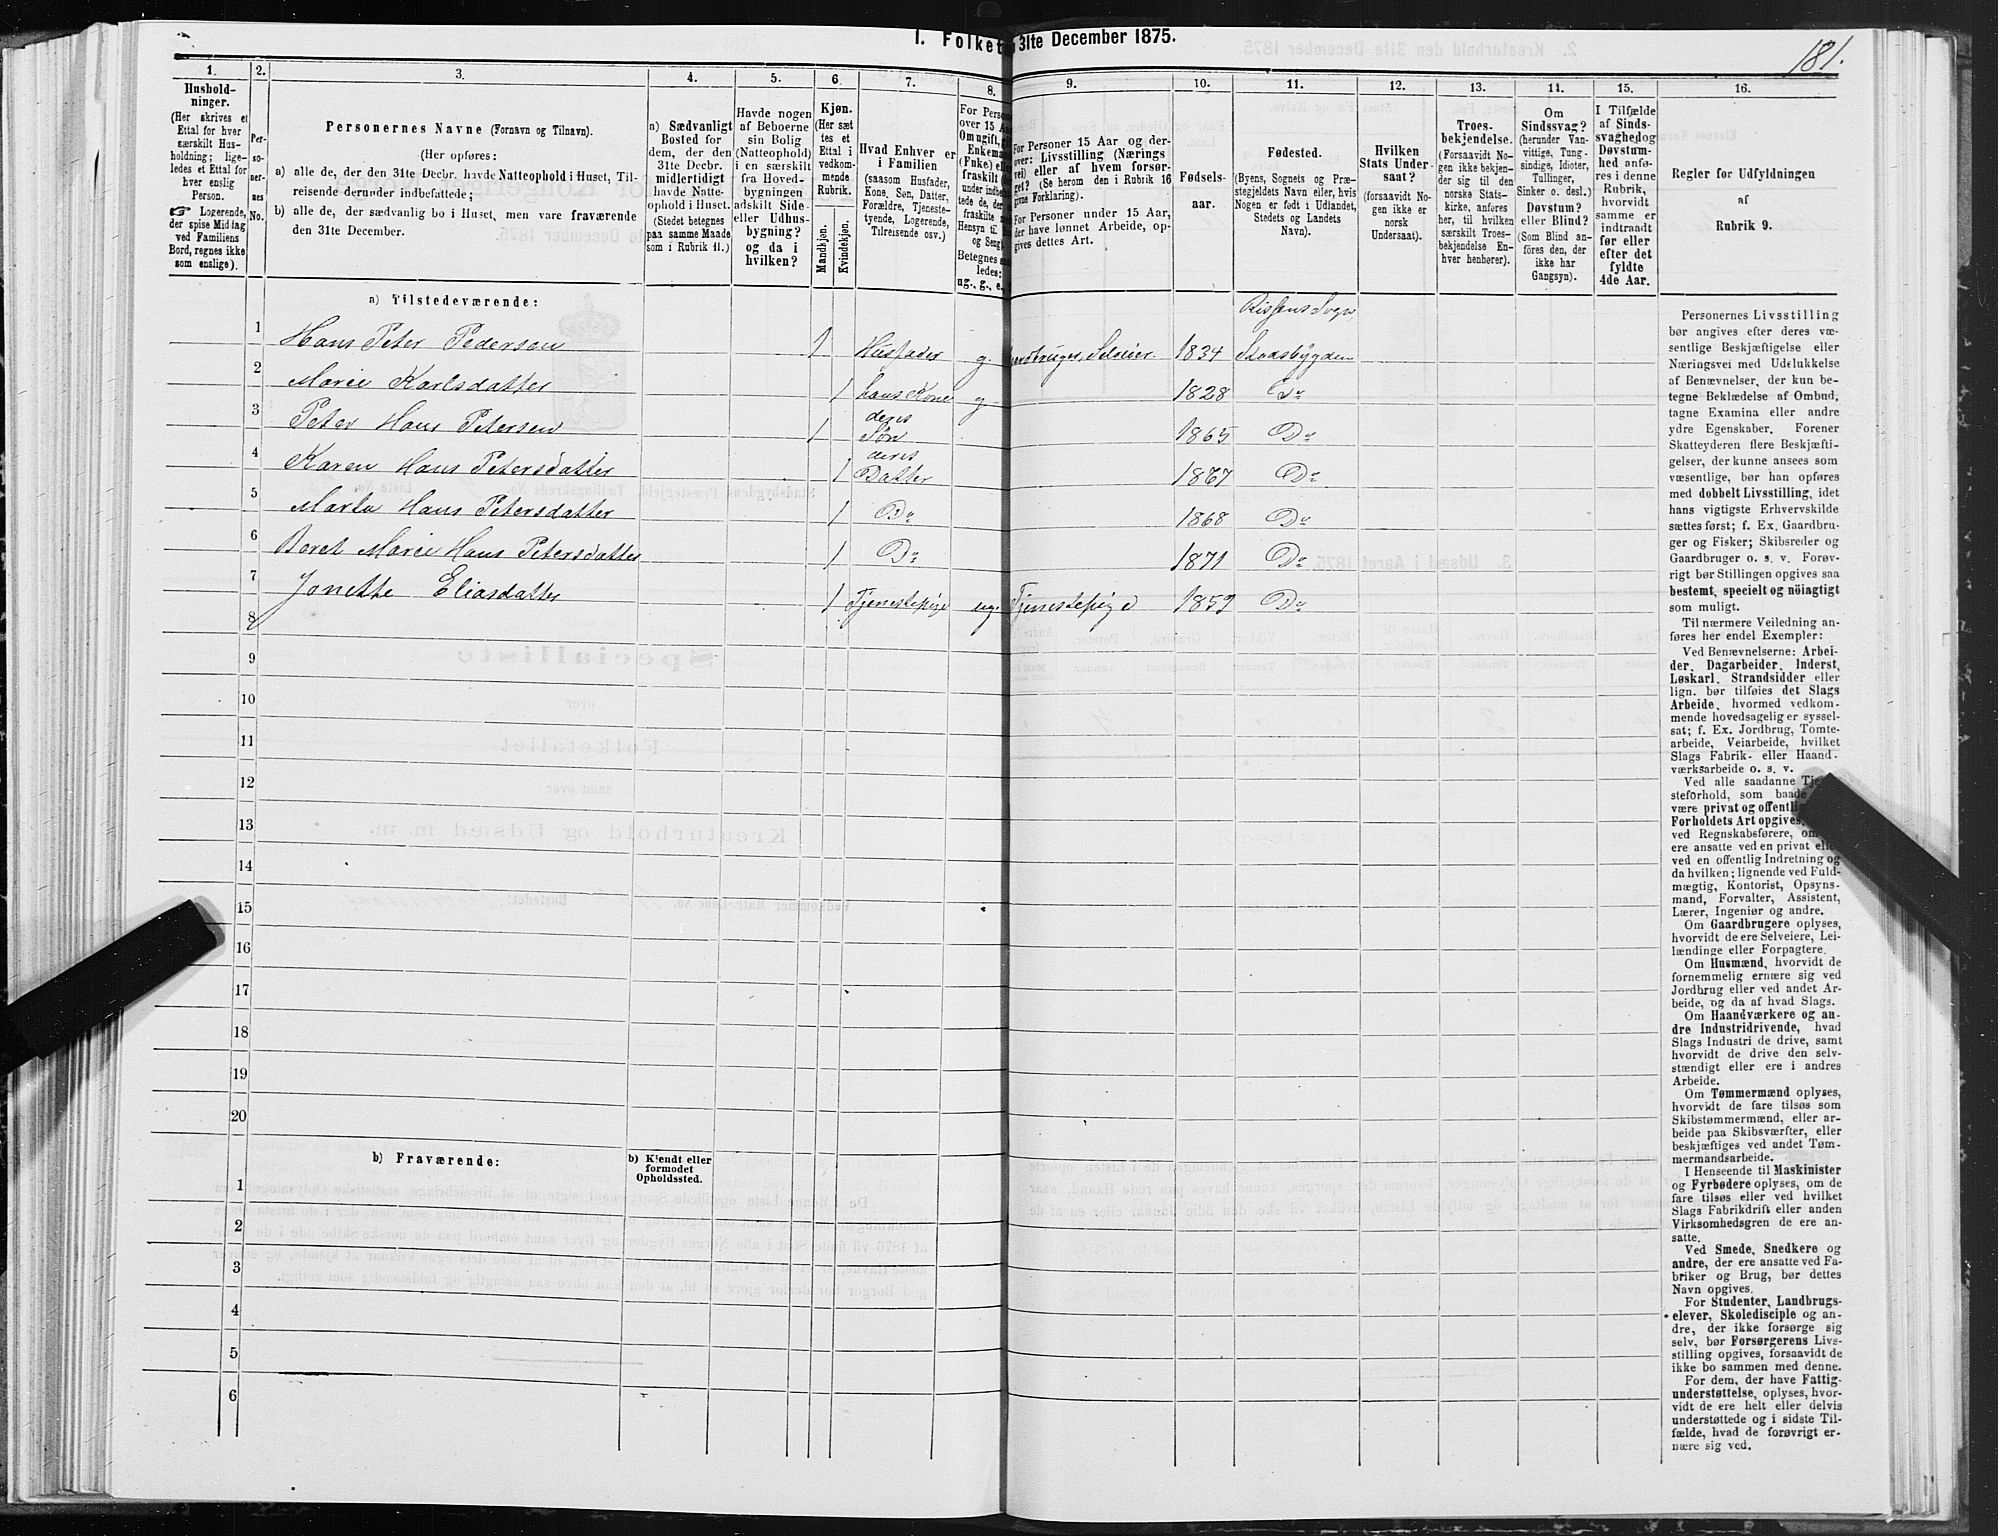 I. Folket 31te December 1875.
181.
1. 2. 3. 4. 5. 6. 7. 8. 9. 10. 11. 12. 13. 14. 15. 16.
Husholdninger.
(Her skrives et
Ettal for hver
særskilt Husholdning;
ligeledes et Ettal for
hver enslig
Person.
☞ Logerende,
der spise Middag
ved Familiens
Bord, regnes ikke
som enslige).
Personernes No.
Personernes Navne (Fornavn og Tilnavn).
(Her opføres:
a) alle de, der den 31te Decbr. havde Natteophold i Huset, Tilreisende derunder indbefattede;
b) alle de, der sædvanlig bo i Huset, men vare fraværende
den 31te December.
a) Sædvanligt
Bosted for
dem, der den
31te Decbr.
midlertidigt
havde Natteophold i Huset.
(Stedet betegnes
paa samme Maade
som i Rubrik 11.)
Havde nogen
af Beboerne
sin Bolig
(Natteophold)
i en særskilt
fra Hovedbygningen
adskilt Side-
eller Udhusbygning?
og da i
hvilken?
Kjøn.
(Her sættes et
Ettal i
vedkommende
Rubrik.
Mandkjøn.
Kvindekjøn.
Hvad Enhver er
i Familien
(saasom Husfader,
Kone, Søn, Datter,
Forældre, Tjenestetyende, Logerende,
Tilreisende osv.)
For Personer 15 Aar og derover: Livsstilling (Næringsvei) eller af hvem forsørget? (Se herom den i Rubrik 16
givne Forklaring).
For Personer under 15 Aar,
der have lønnet Arbeide, opgives dettes Art.
Fødselsaar.
Fødested.
(Byens, Sognets og Præstegjeldets Navn eller, hvis
Nogen er født i Udlandet,
Stedets og Landets
Navn).
Hvilken
Stats Undersaat?
(forsaavidt Nogen ikke er
norsk
Undersaat).
Troesbekjendelse.
(Forsaavidt Nogen ikke bekjender sig til den
norske Statskirke, anføres
her, til hvilken
særskilt Troesbekjendelse Enhver henhører).
Om
Sindssvag?
(herunder Vanvittige, Tungsindige, Idioter,
Tullinger,
Sinker o. desl.)
Døvstum?
eller Blind?
(Som Blind anføres den, der
ikke har
Gangsyn).
I Tilfælde
af Sindssvaghed og
Døvstumhed anføres i denne
Rubrik,
hvorvidt
samme er
indtraadt
før eller
efter det
fyldte
4de Aar.
Regler for Udfyldningen
af
Rubrik 9.
a) Tilstedeværende:
Rissens Sogn
1 Hans Peter Pedersen 1 Husfader g. Gaardbruger, Selveier 1834 Stadsbygden
2 Marie Karlsdatter 1 hans Kone g 1828 Do
3 Peter Hans Petersen 1 deres Søn 1865 Do
4 Karen Hans Petersdatter 1 deres Datter 1867 Do
5 Marta Hans Petersdatter 1 Do 1868 Do
6 Beret Marie Hans Petersdatter 1 Do 1871 Do
7 Jonette Eliasdatter 1 Tjenestepige ug. Tjenestepige 1859 Do
8
9
10
11
12
13
14
15
16
17
18
19
20
b) Fraværende:
b) Kjendt eller
formodet
Opholdssted.
1
2
3
4
5
6
Personernes Livsstilling
bør angives efter deres væsentlige Beskjæftigelse eller
Næringsvei med Udelukkelse
af Benævnelser, der kun betegne Beklædelse af Ombud,
tagne Examina eller andre
ydre Egenskaber. Forener
Skatteyderen flere Beskjæftigelser, der kunne ansees som
væsentlige, bør han opføres
med dobbelt Livsstilling, idet
hans vigtigste Erhvervskilde
sættes først; f. Ex. Gaardbruger og Fisker; Skibsreder og
Gaardbruger o. s. v. Forøvrigt bør Stillingen opgives saa
bestemt, specielt og nøiagtigt
som muligt.
Til nærmere Veiledning anføres her endel Exempler:
Ved Benævnelserne: Arbeider, Dagarbeider, Inderst,
Løskarl, Strandsidder eller
lign. bør tilføies det Slags
Arbeide, hvormed vedkommende hovedsagelig er sysselsat; f. Ex. Jordbrug, Tomtearbeide, Veiarbeide, hvilket
Slags Fabrik- eller Haandværksarbeide o. s. v.
Ved alle saadanne Tjenesteforhold, som baade
være privat og offentlig
Forholdets Art opgives,
ved Regnskabsførere, om
ere ansatte ved en privat eller
ved en offentlig Indretning og
da hvilken; lignende ved Fuldmægtig, Kontorist, Opsynsmand, Forvalter, Assistent,
Lærer, Ingeniør og andre.
Om Gaardbrugere oplyses,
hvorvidt de ere Selveiere, Leilændinge eller Forpagtere.
Om Husmænd, hvorvidt de
fornemmelig ernære sig ved
Jordbrug eller ved andet Arbeide, og da af hvad Slags.
Om Haandværkere og andre Industridrivende, hvad
Slags Industri de drive, samt
hvorvidt de drive den selvstændigt eller ere i andres
Arbeide.
Om Tømmermænd oplyses,
hvorvidt de fare tilsøs som
Skibstømmermænd, eller arbeide paa Skibsværfter, eller
beskjæftiges ved andet Tømmermandsarbeide.
I Henseende til Maskinister
og Fyrbødere oplyses, om de
fare tilsøs eller ved hvilket
Slags Fabrikdrift eller anden
Virksomhedsgren de ere ansatte.
Ved Smede, Snedkere og
andre, der ere ansatte ved Fabriker og Brug, bør dettes
Navn opgives.
For Studenter, Landbrugselever, Skoledisciple og andre, der ikke forsørge sig
selv, bør Forsørgerens Livsstilling opgives, forsaavidt de
ikke bo sammen med denne.
For dem, der have Fattigunderstøttelse, oplyses, hvorvidt de ere helt eller delvis
understøttede og i sidste Tilfælde, hvad de forøvrigt ernære sig ved.